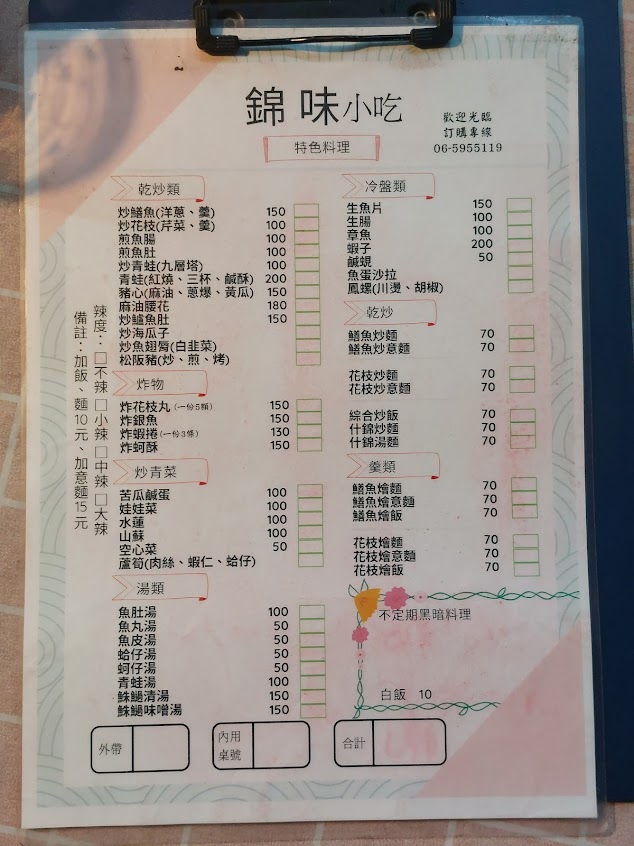 錦味小吃
歡迎光臨
訂購專線
06-5955119
特色料理
乾炒類
炒鱔魚(洋蔥、羹) 150
炒花枝(芹菜、羹) 100
煎魚腸 100
煎魚肚 100
炒青蛙(九層塔) 100
青蛙(紅燒、三杯、鹹酥) 200
豬心(麻油、蔥爆、黃瓜) 150
麻油腰花 180
炒鱸魚肚 150
炒海瓜子
炒魚翅唇(白韭菜)
松阪豬(炒、煎、烤)
炸物
炸花枝丸(一份5顆) 150
炸銀魚 150
炸蝦捲(一份3條) 130
炸蚵酥 150
炒青菜
苦瓜鹹蛋 100
娃娃菜 100
水蓮 100
山蘇 100
空心菜 50
蘆筍(肉絲、蝦仁、蛤仔)
湯類
魚肚湯 100
魚丸湯 50
魚皮湯 50
蛤仔湯 50
蚵仔湯 50
青蛙湯 100
鮢鮐清湯 150
鮢鮐味噌湯 150
冷盤類
生魚片 150
生腸 100
章魚 100
蝦子 200
鹹蜆 50
魚蛋沙拉
鳳螺(川燙、胡椒)
乾炒
鱔魚炒麵 70
鱔魚炒意麵 70
花枝炒麵 70
花枝炒意麵 70
綜合炒飯 70
什錦炒麵 70
什錦湯麵 70
羹類
鱔魚燴麵 70
鱔魚燴意麵 70
鱔魚燴飯 70
花枝燴麵 70
花枝燴意麵 70
花枝燴飯 70
不定期黑暗料理
白飯 10
辣度：□不辣□小辣□中辣□大辣
備註：加飯、麵10元、加意麵15元
外帶
內用
桌號
合計